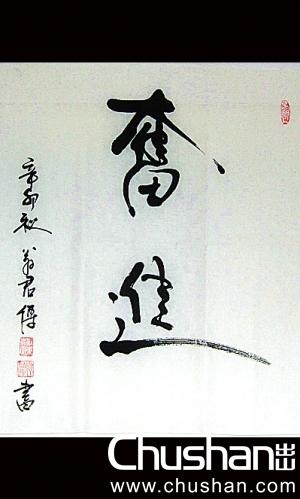 奮進
辛卯秋 翁君 書
Chushan
www.chushan.com